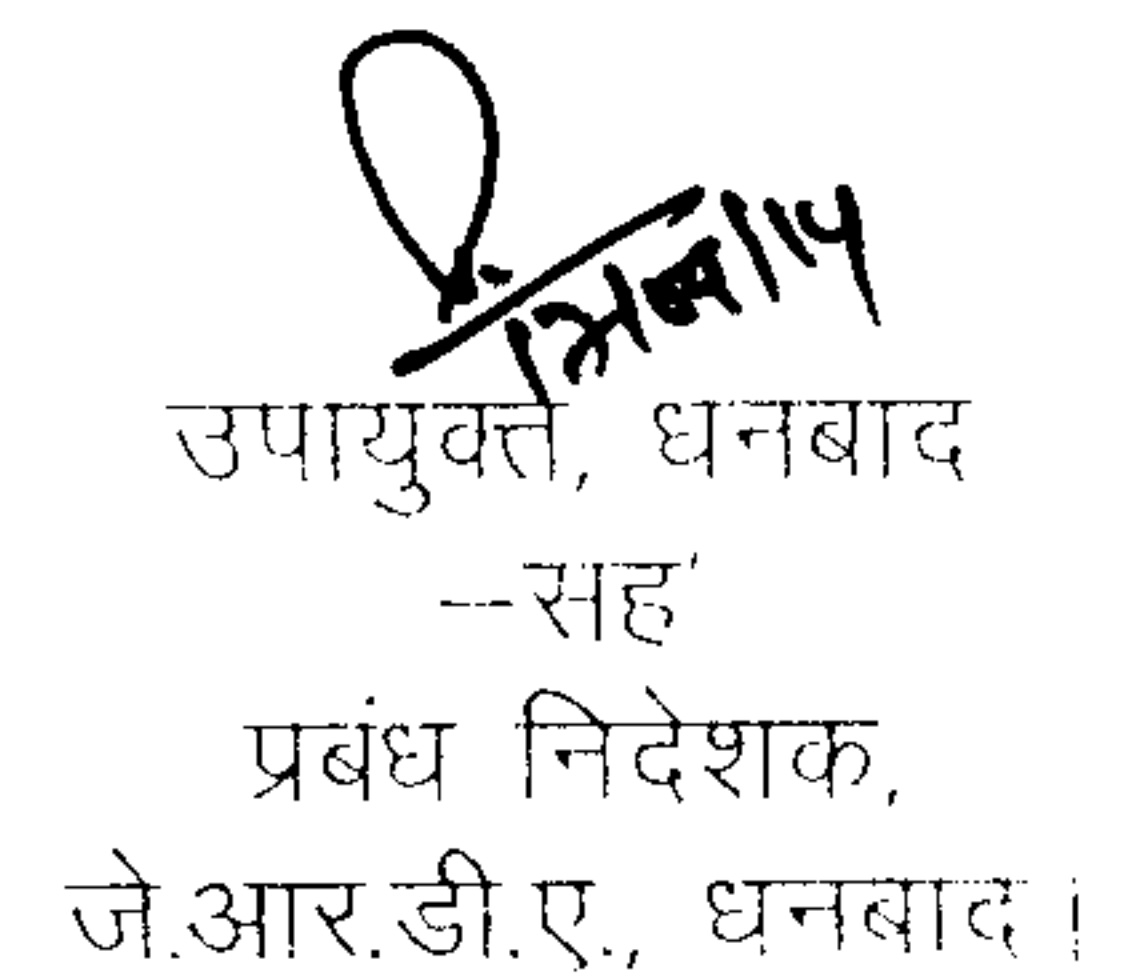 उपायुक्त, धनबाद
--सह
प्रबंध निदेशक,
जे.आर.डी.ए., धनबाद।